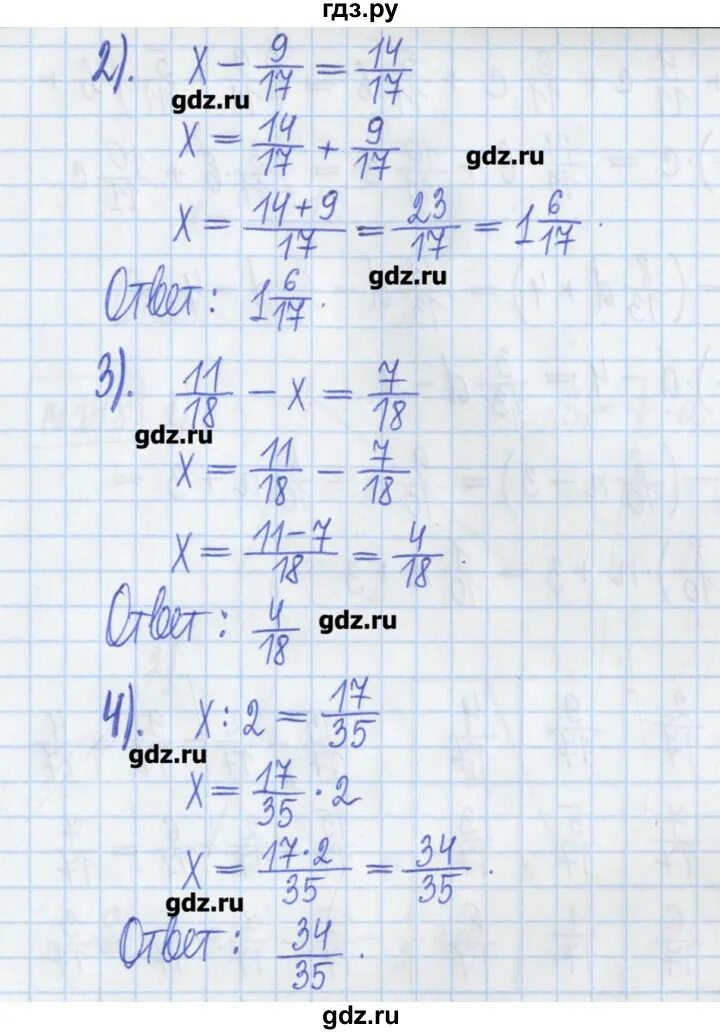 гдз.ру
2). x - 9/17 = 14/17
gdz.ru
x = 14/17 + 9/17
gdz.ru
x = (14+9)/17 = 23/17 = 1 6/17.
gdz.ru
Ответ: 1 6/17.
3). 11/18 - x = 7/18
gdz.ru
x = 11/18 - 7/18
x = (11-7)/18 = 4/18.
Ответ: 4/18
gdz.ru
4). x : 2 = 17/35
gdz.ru
x = 17/35 · 2
x = (17·2)/35 = 34/35.
gdz.ru
Ответ: 34/35.
gdz.ru